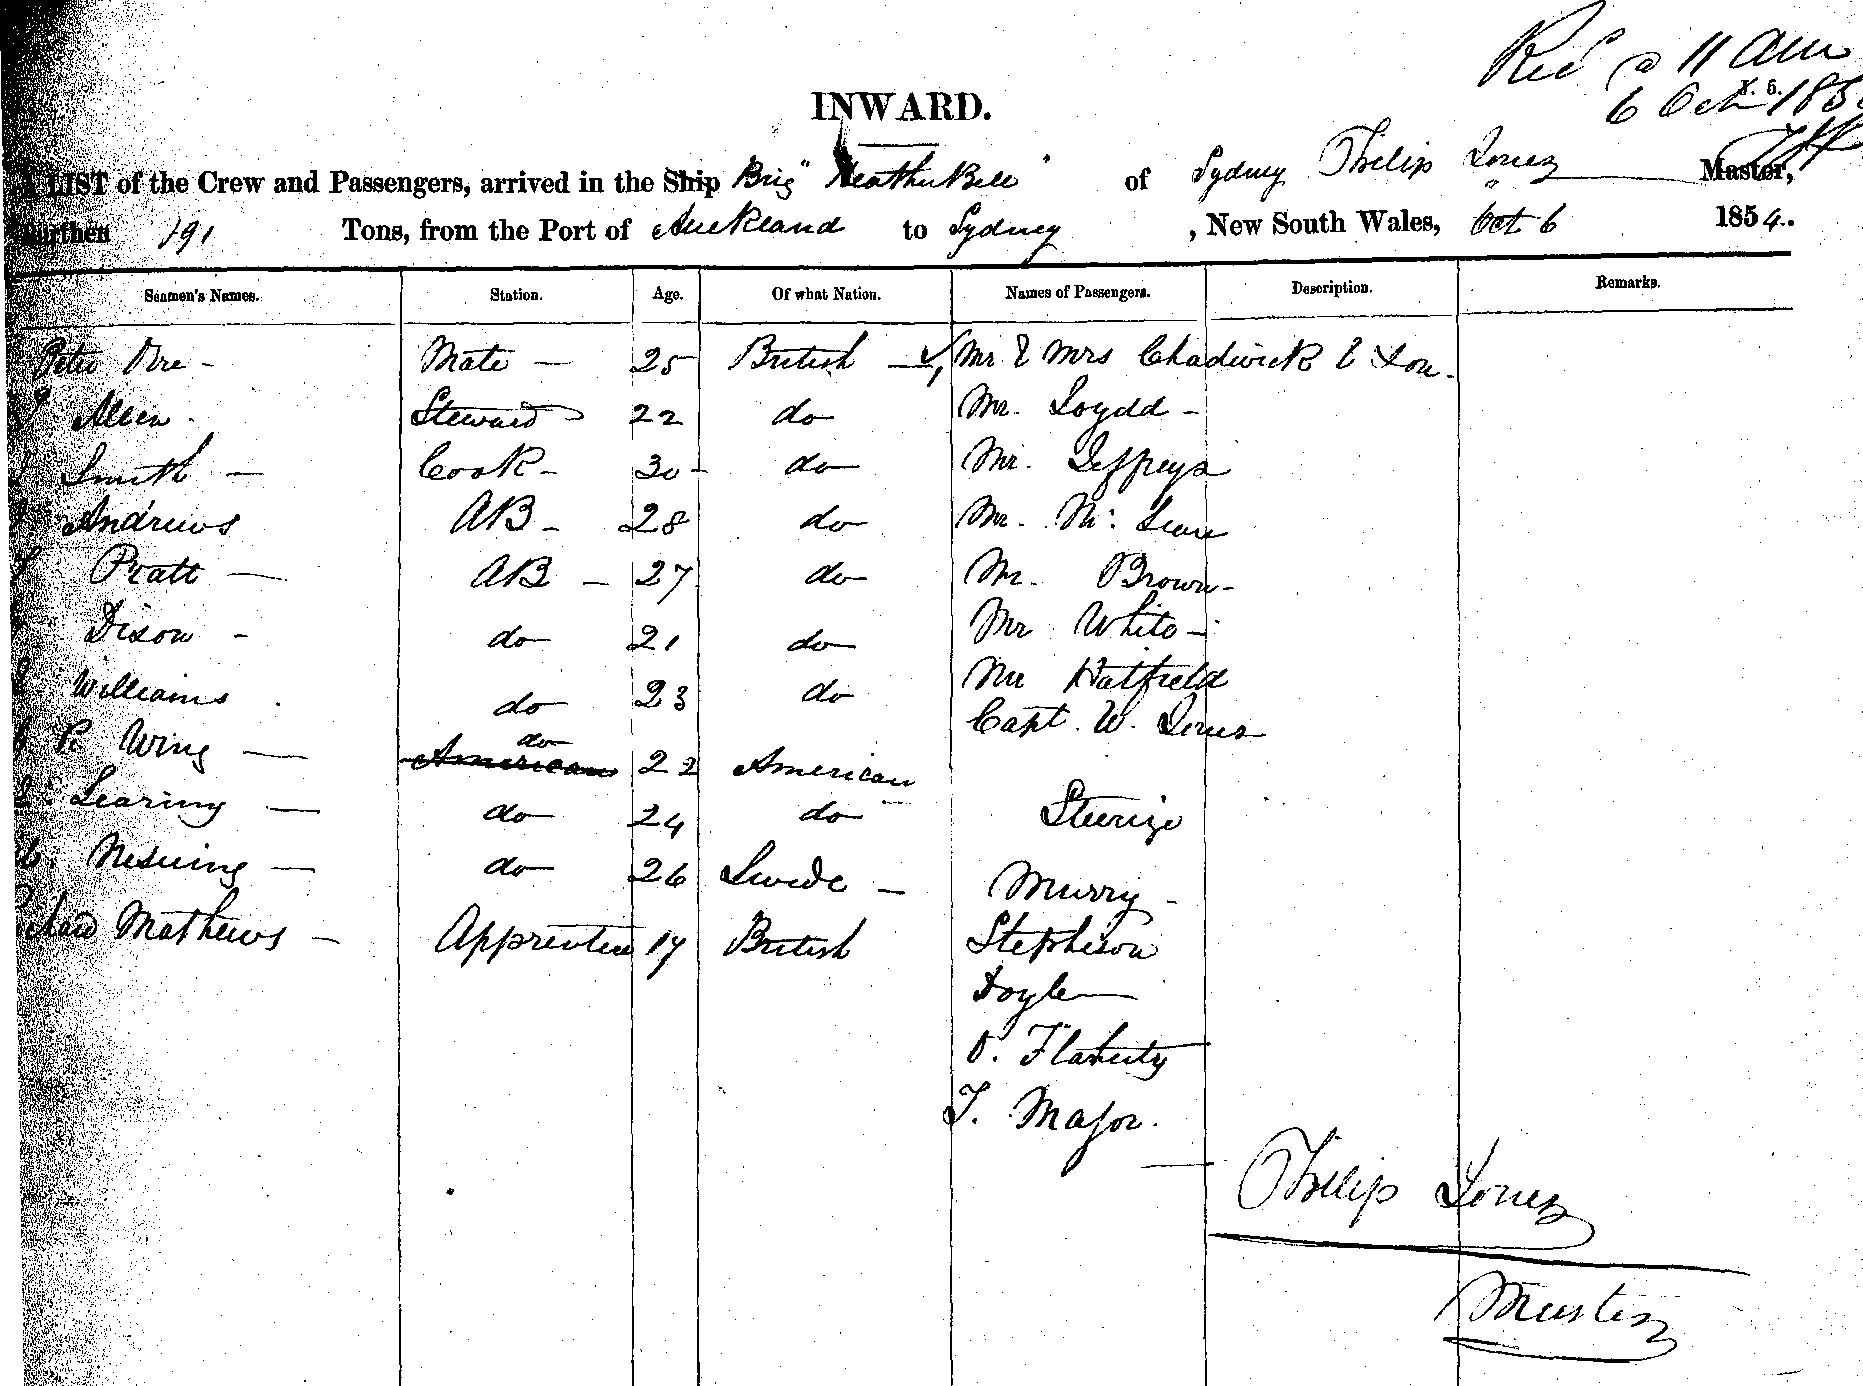 Recd @ 11 am
6 Oct 185
X. 5.
INWARD.
LIST of the Crew and Passengers, arrived in the Ship Brig "Heather Bell" of Sydney Philip Jones Master,
Burthen 191 Tons, from the Port of Auckland to Sydney, New South Wales, Oct 6 1854.
Seamen's Names. Station. Age. Of what Nation. Names of Passengers. Description. Remarks.
Peter - Mate - 25 British - Mr & Mrs Chadwick & Son.
Allen - Steward 22 do Mr. Loydd -
Smith - Cook - 30 - do Mr. Jeffreys
Andrews AB - 28 do Mr. Mc Lean
Pratt - AB - 27 do Mr. Brown -
Dixon - do 21 do Mr White -
Williams do 23 do Mr Hatfield
Capt. W. Jones
Wing - American do 22 American
Learing - do 24 do Steerige
do 26 Swede - Murry -
Richard Mathews - Apprentice 17 British Stephenson
Doyle
O. Flaherty
T. Major.
Philip Jones
Master